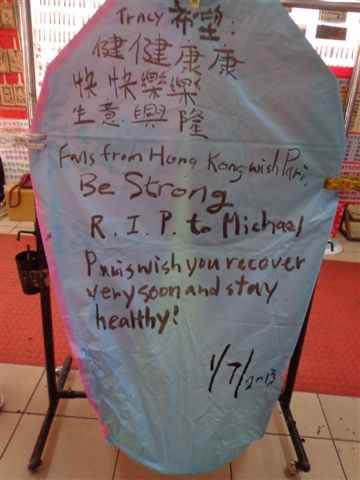 Tracy 希望:
健健康康
快快樂樂
生意興隆
Fans from Hong Kong wish Paris,
Be Strong
R. I. P. to Michael
Paris wish you recover
very soon and stay
healthy!
1/7/2013